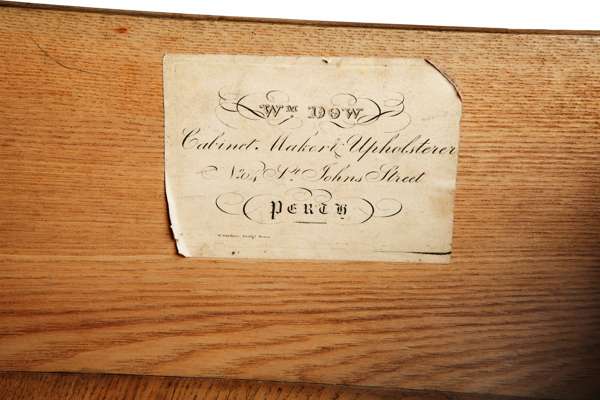 Wm. DOW
Cabinet Maker & Upholsterer
St. Johns Street
PERTH